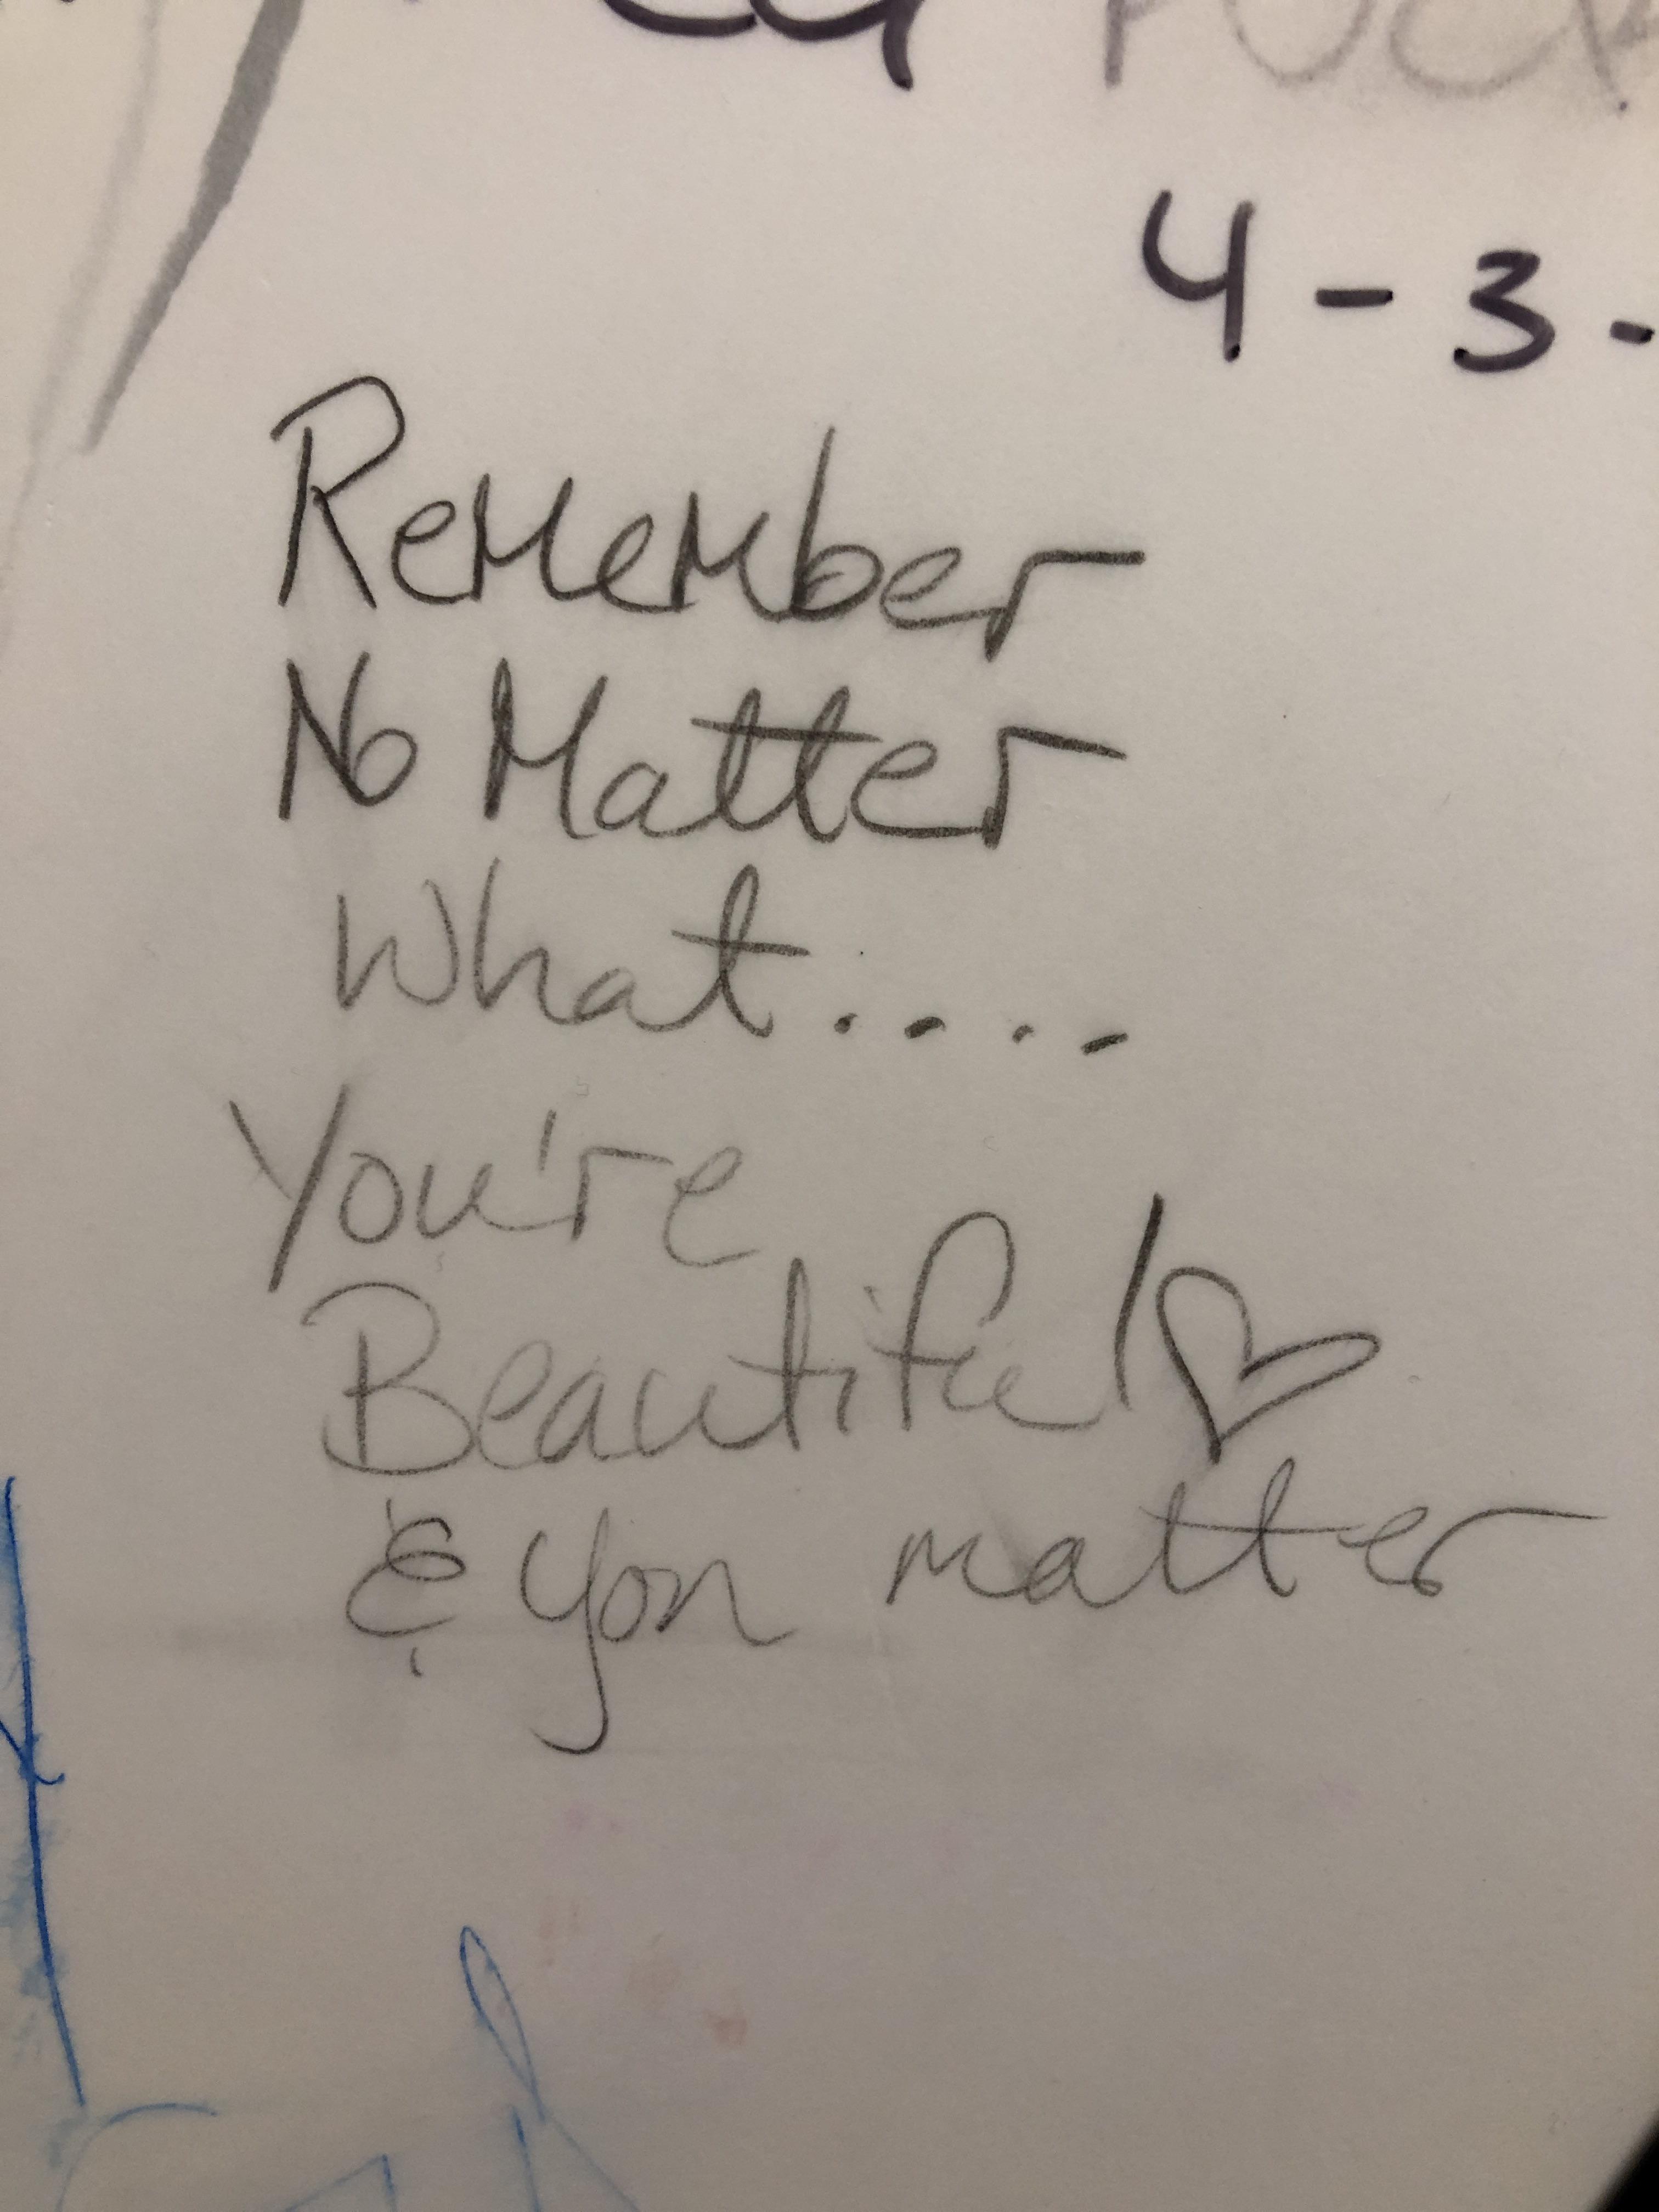 4-3-
Remember
No Matter
What....
You're
Beautiful♡
& you matter